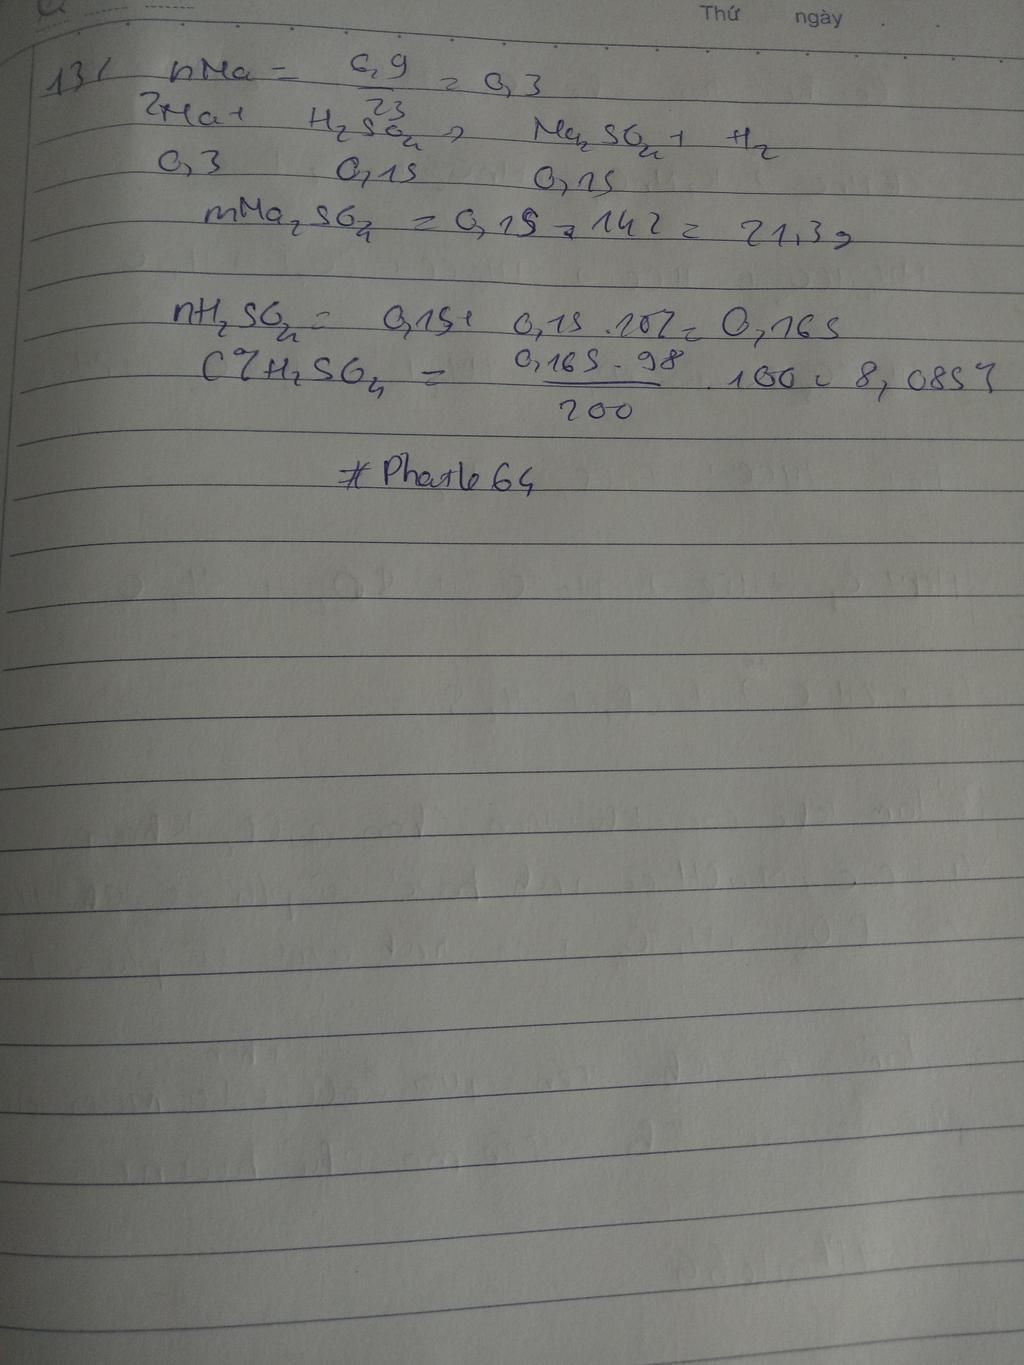 Thứ ngày
13/ nNa = 6,9/23 = 0,3
2Na + H₂SO₄ → Na₂SO₄ + H₂
0,3 0,15 0,15
mNa₂SO₄ = 0,15 . 142 = 21,3g
nH₂SO₄ = 0,15 + 0,15 . 10% = 0,165
C%H₂SO₄ = 0,165 . 98/200 . 100 = 8,085%